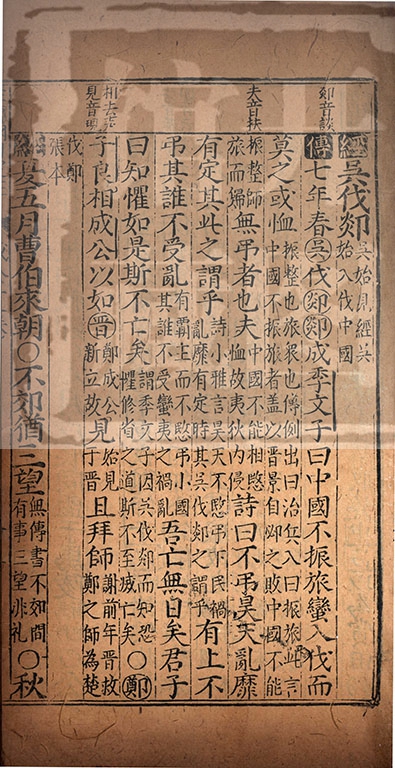 郯音談
夫音扶
相去聲
見音現
經吳伐郯吳始見經吳始入伐中國
傳七年春吳伐郯郯成季文子曰中國不振旅蠻入伐而
莫之或恤振整也旅衆也傳例出曰治兵入曰振旅此言中國不振旅者蓋以晉景自邲之敗中國不能
振整師旅而歸無弔者也夫中國不能相愍恤故夷狄内侵詩曰不弔昊天亂靡
有定其此之謂乎詩小雅言昊天不愍弔下民禍亂靡有定時其吳伐郯之謂乎有上不
弔其誰不受亂有霸主而不愍弔小國其誰不受蠻夷之禍亂吾亡無日矣君子
曰知懼如是斯不亡矣謂季文子因吳伐郯而知恐懼修省之道斯不至滅亡矣○鄭
子良相成公以如晉鄭成公新立故見始見于晉且拜師謝前年晉救鄭之師為楚
伐鄭張本
經夏五月曹伯來朝○不郊猶三望無傳書不郊間有事三望非禮○秋